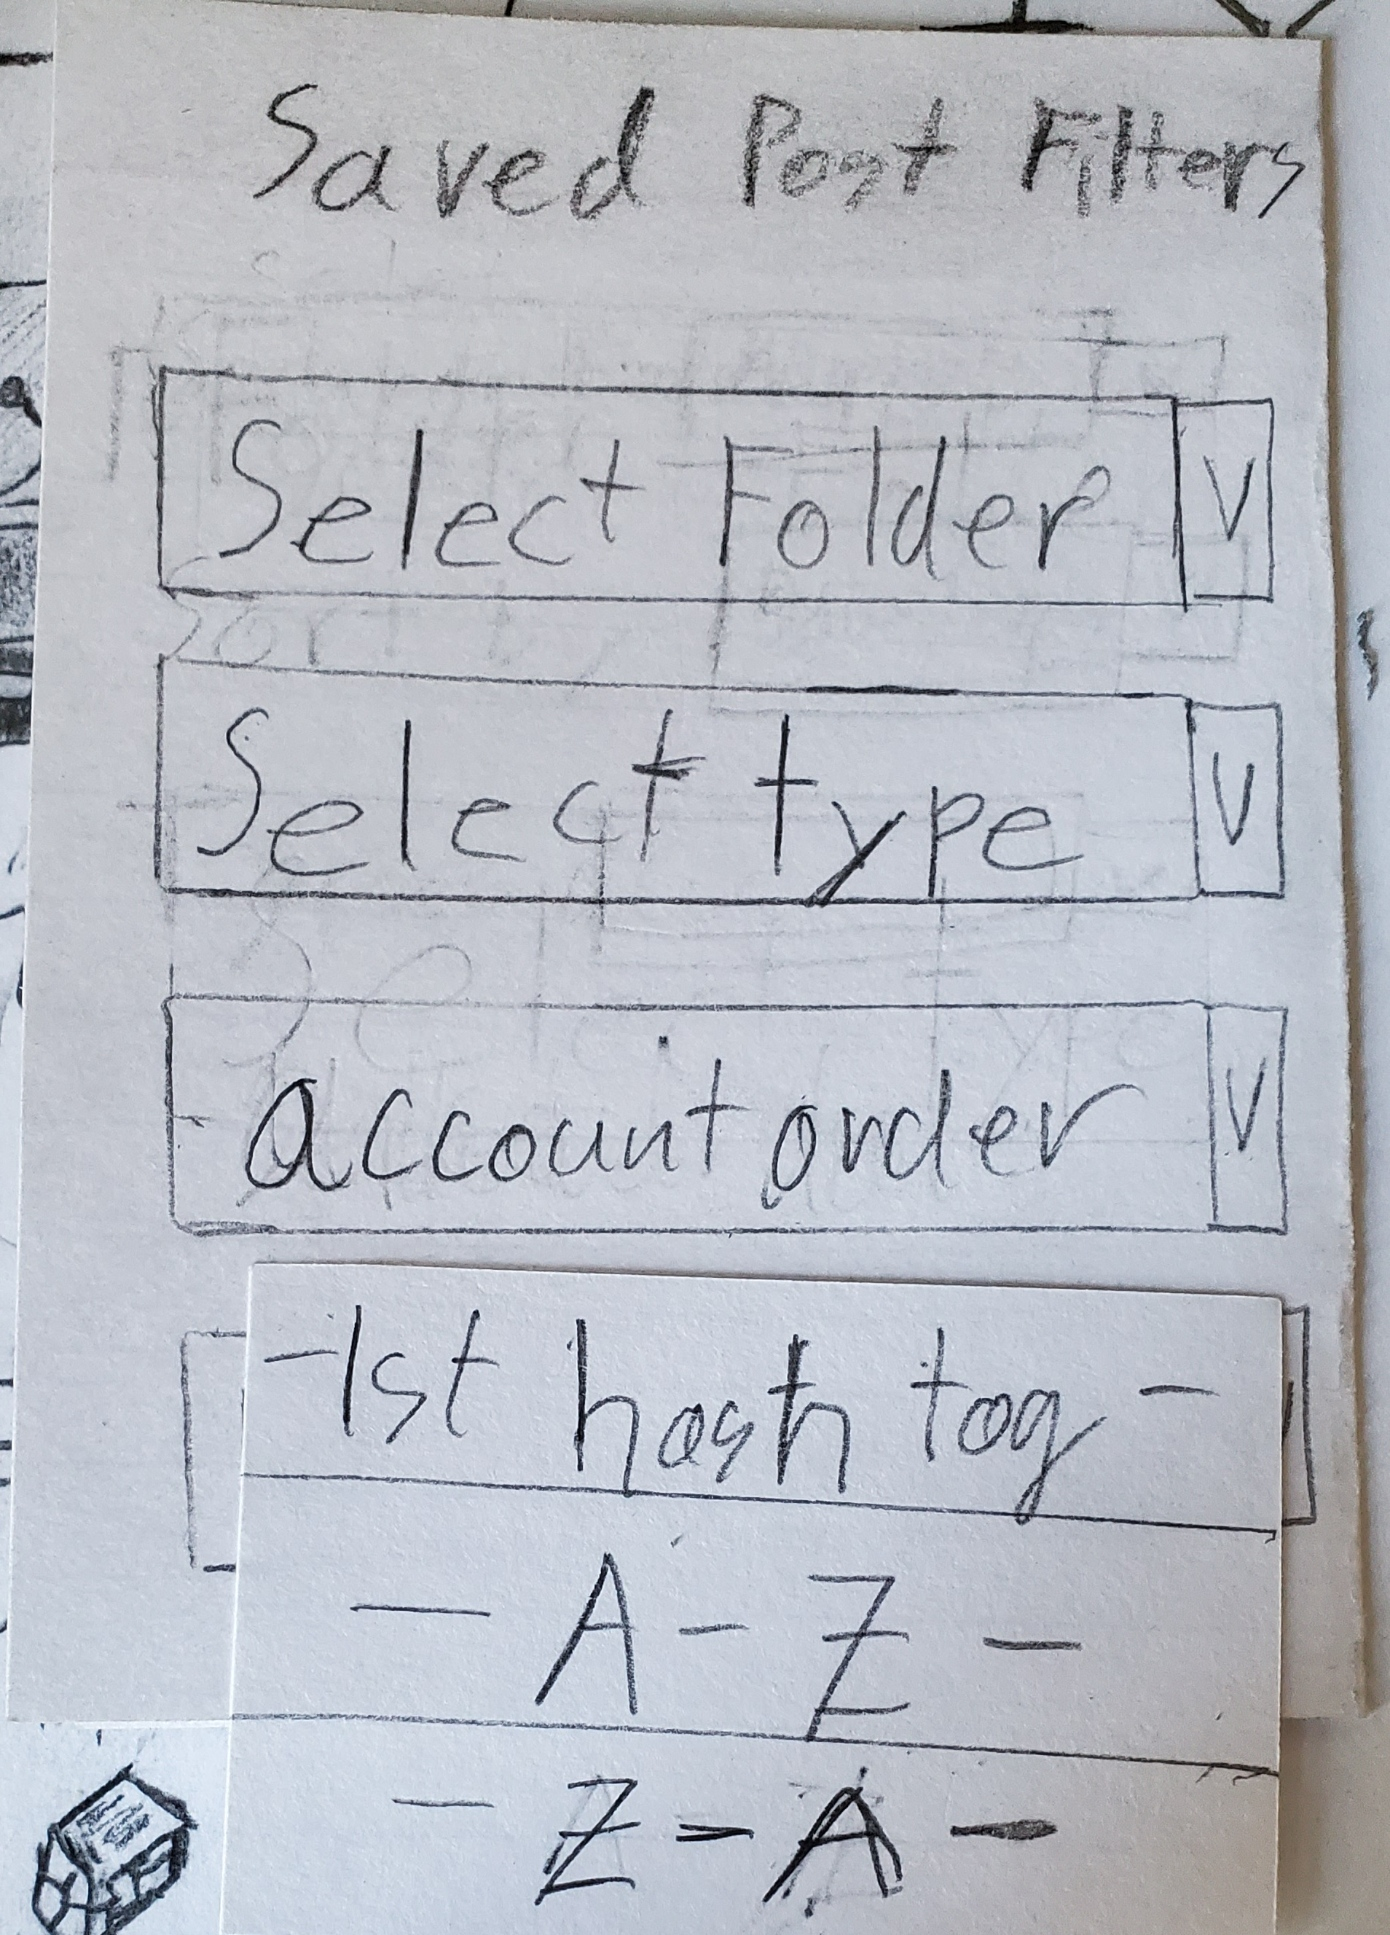 Saved Post Filters
Select Folder V
Sort
Select type V
account order V
-1st hash tag-
- A - Z -
- Z - A -